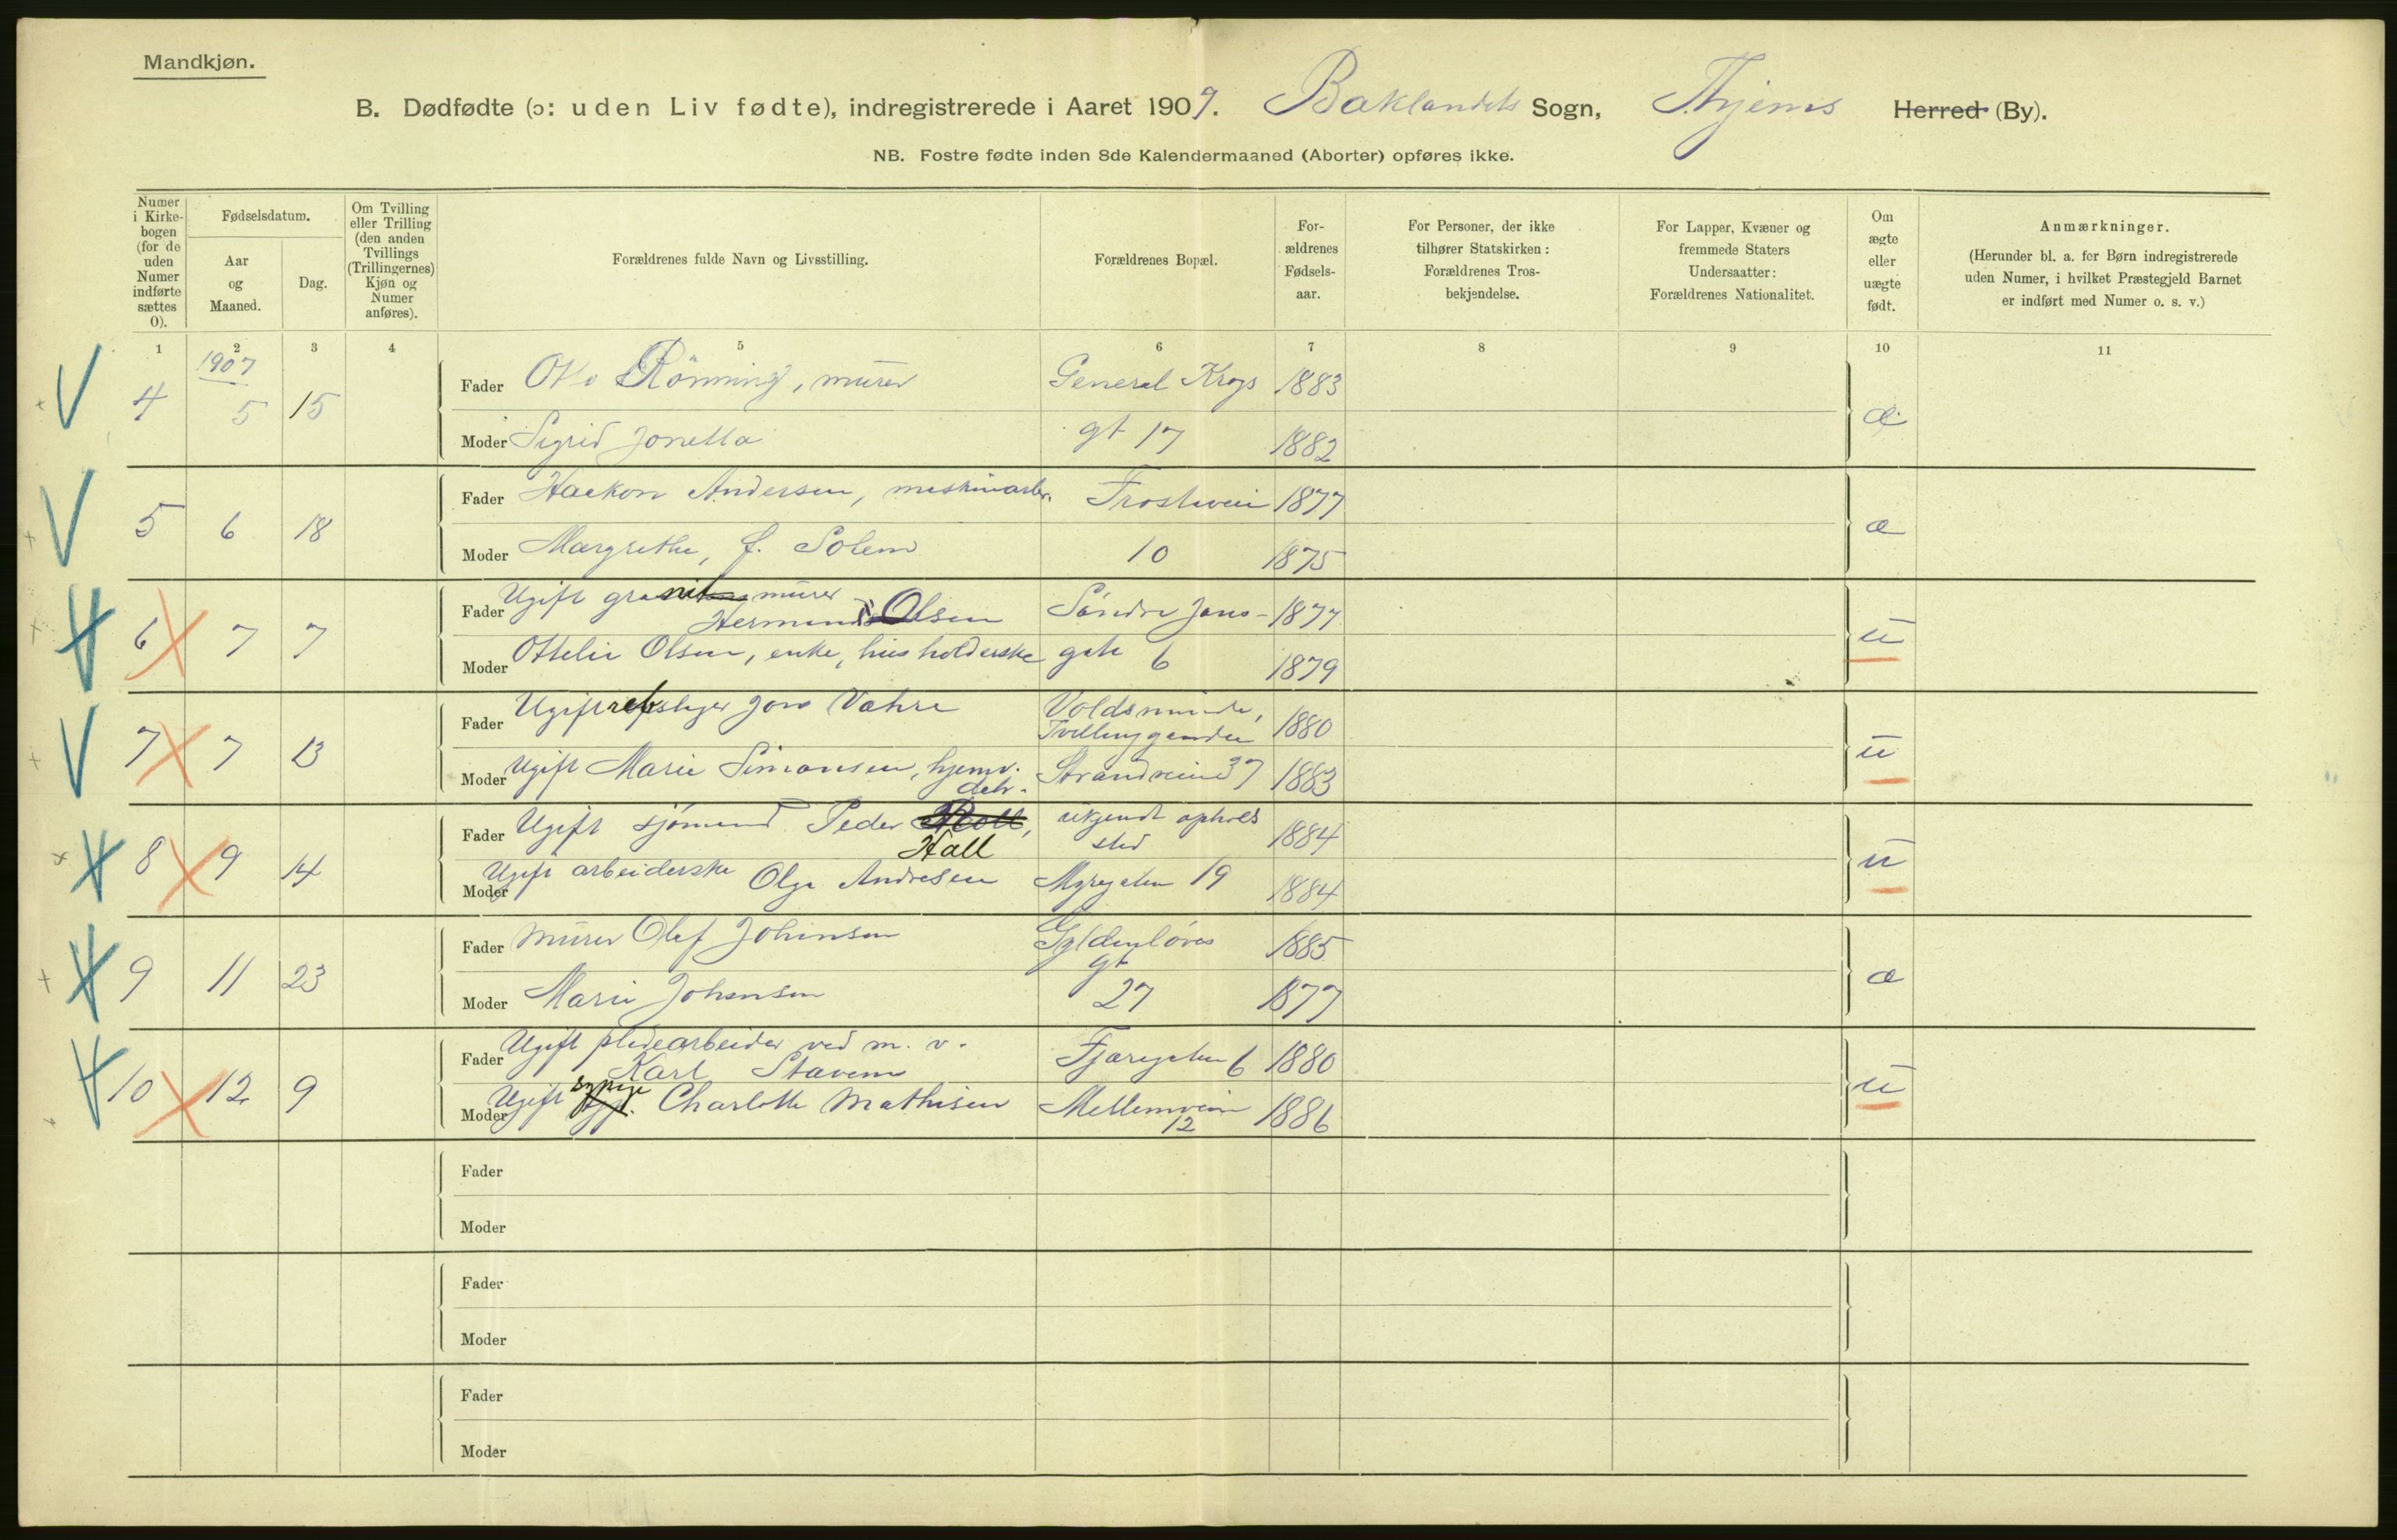 Mandkjøn.
B. Dødfødte (ɔ: uden Liv fødte), indregistrerede i Aaret 1907. Baklandets Sogn, Thjems Herred (By).
NB. Fostre fødte inden 8de Kalendermaaned (Aborter) opføres ikke.
Numer i Kirkebogen (for de uden Numer indførte sættes 0).
Fødselsdatum.
Aar og Maaned.
Dag.
Om Tvilling eller Trilling (den anden Tvillings (Trillingernes) Kjøn og Numer anføres).
Forældrenes fulde Navn og Livsstilling.
Forældrenes Bopæl.
For-ældrenes Fødsels-aar.
For Personer, der ikke tilhører Statskirken: Forældrenes Tros-bekjendelse.
For Lapper, Kvæner og fremmede Staters Undersaatter: Forældrenes Nationalitet.
Om ægte eller uægte født.
Anmærkninger.
(Herunder bl. a. for Børn indregistrerede uden Numer, i hvilket Præstegjeld Barnet er indført med Numer o. s. v.)
1 2 3 4 5 6 7 8 9 10 11
1907
4 5 15 Fader Otto Rönning, murer General Krogs 1883 æ
Moder Sigrid Jonetta gt 17 1882
5 6 18 Fader Haakon Andersen, maskinarb. Frostaveien 1877 æ
Moder Margrethe, f. Solem 10 1875
6 7 7 Fader Ugift granit murer
Hermund Olsen Söndre Jons- 1877 u
Moder Ottelie Olsen, enke, husholderske gate 6 1879
7 7 13 Fader Ugift rebslager Jon Vahre Voldsminde, 1880 u
Moder Ugift Marie Simonsen, hjemv. Strandveien 37 1883
datr.
8 9 14 Fader Ugift sjömand Peder Hall ukjendt opholds 1884 u
sted
Moder Ugift arbeiderske Olga Andresen Myregaten 19 1884
9 11 23 Fader Murer Olaf Johansen Gyldenlöves 1885 æ
gt
Moder Marie Johansen 27 1877
10 12 9 Fader Ugift pladearbeider ved m. v.
Karl Stavem Fjæregaten 6 1880 u
Moder Ugift sypige Charlotte Mathisen Mellemveien 1886
12
Fader
Moder
Fader
Moder
Fader
Moder